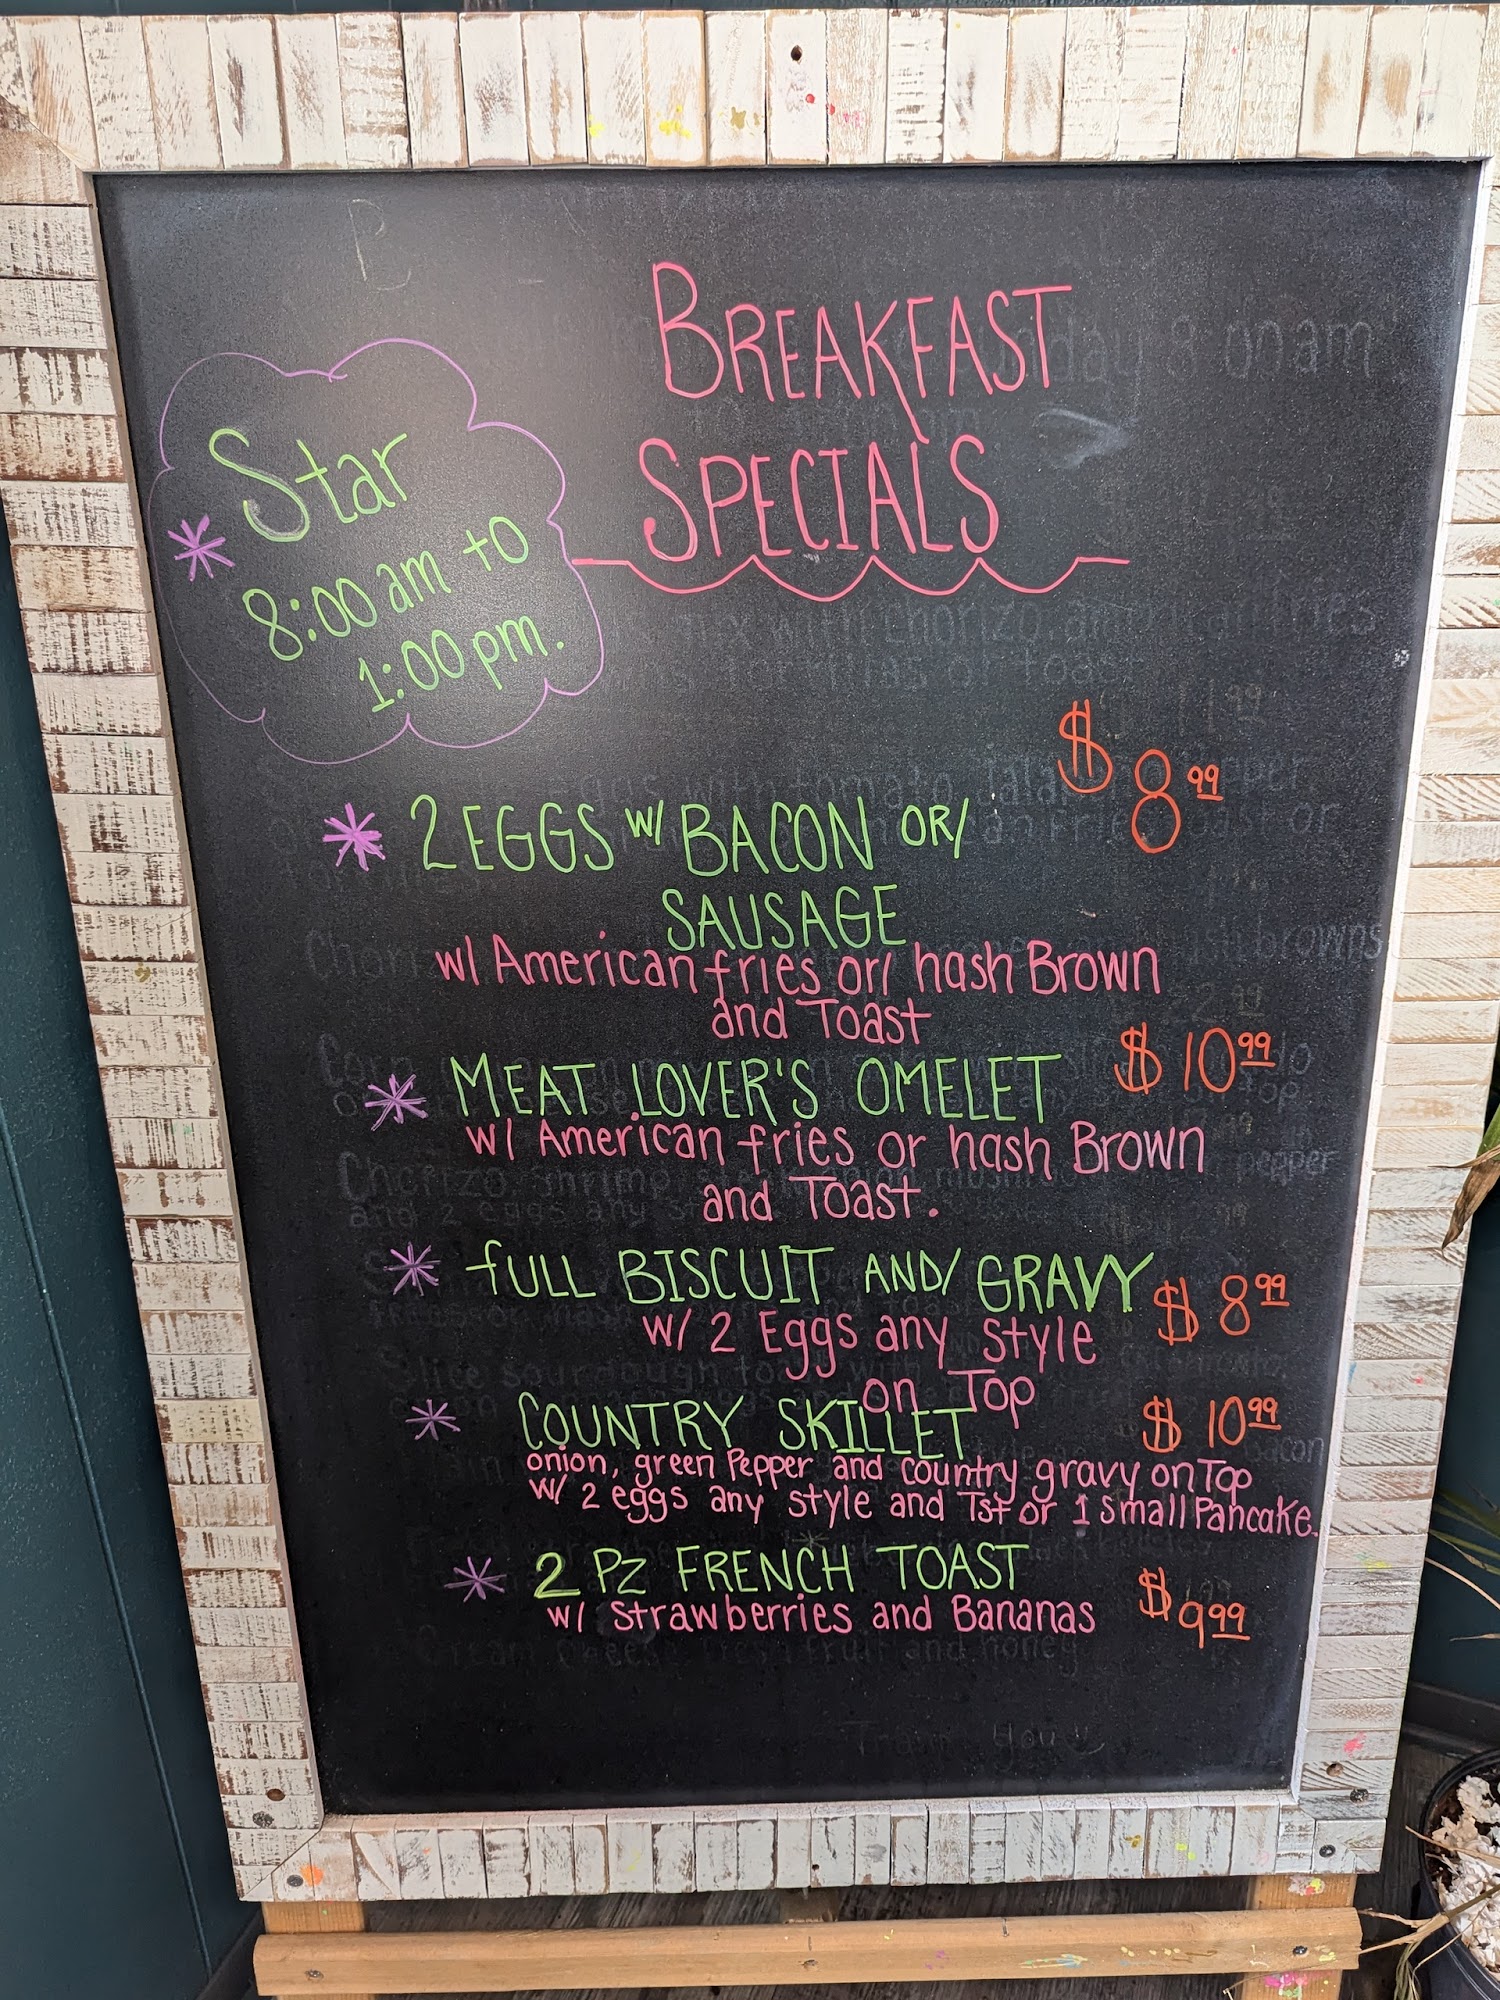 BREAKFAST
SPECIALS
Star
* 8:00 am to
1:00 pm.
* 2 EGGS w/ BACON OR/ $8.99
SAUSAGE
w/ American fries or/ hash Brown
and Toast
* MEAT LOVER'S OMELET $10.99
w/ American fries or hash Brown
and Toast.
* fULL BISCUIT AND/ GRAVY $8.99
w/ 2 Eggs any style
on Top
* COUNTRY SKILLET $10.99
onion, green Pepper and country gravy on Top
w/ 2 eggs any style and Tst or 1 small Pancake.
* 2 Pz FRENCH TOAST $9.99
w/ strawberries and Bananas